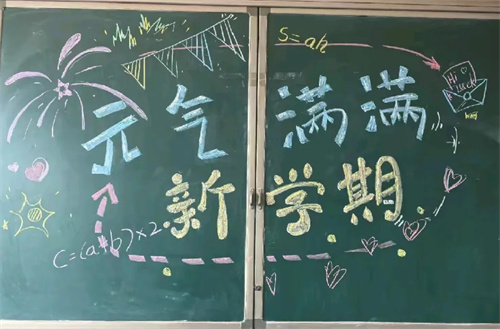 S=ah
Hi
Luck
元气满满
新学期
C=(a+b)×2